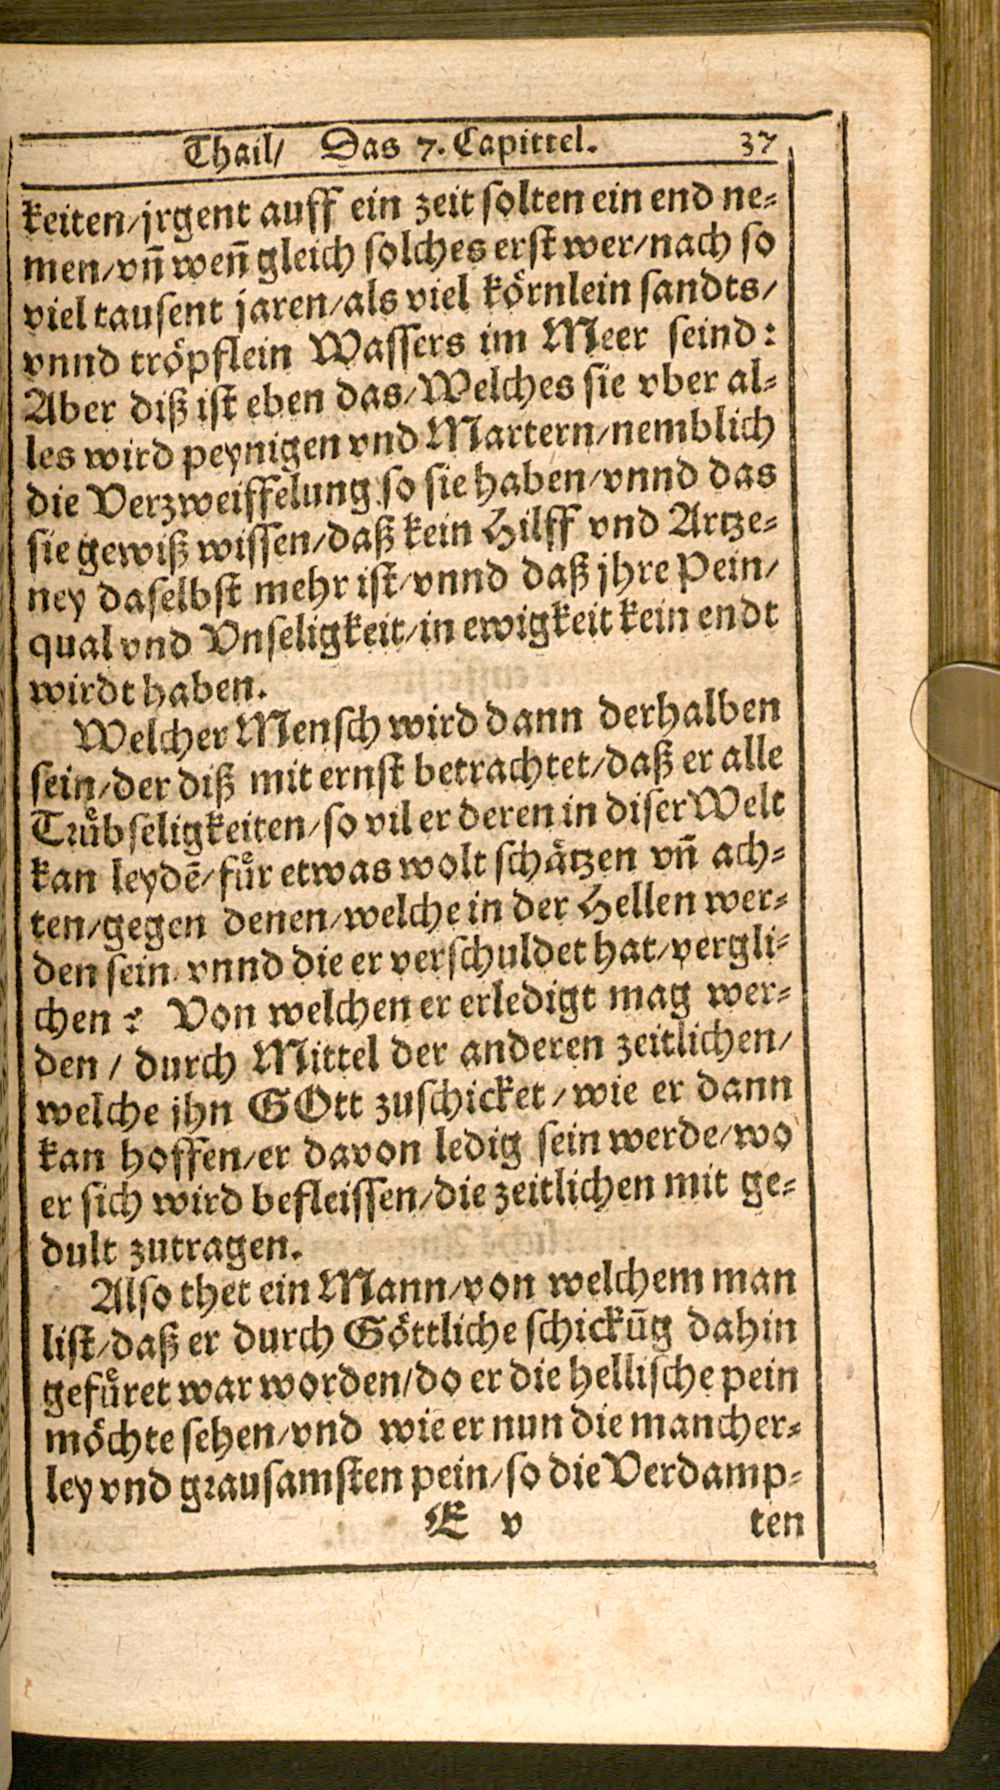 Thail/ Das 7. Capittel. 37
keiten/jrgent auff ein zeit solten ein end ne-
men/vñ weñ gleich solches erst wer/nach so
viel tausent jaren/als viel körnlein sandts/
vnnd tröpflein Wassers im Meer seind:
Aber diß ist eben das/Welches sie vber al-
les wird peynigen vnd Martern/nemblich
die Verzweiffelung so sie haben/vnnd das
sie gewiß wissen/daß kein Hilff vnd Artze-
ney daselbst mehr ist/vnnd daß jhre Pein/
qual vnd Vnseligkeit/in ewigkeit kein endt
wirdt haben.
Welcher Mensch wird dann derhalben
sein/der diß mit ernst betrachtet/daß er alle
Trůbseligkeiten/so vil er deren in diser Welt
kan leydẽ/fůr etwas wolt schätzen vñ ach-
ten/gegen denen/welche in der Hellen wer-
den sein vnnd die er verschuldet hat/vergli-
chen? Von welchen er erledigt mag wer-
den/ durch Mittel der anderen zeitlichen/
welche jhn GOtt zuschicket/wie er dann
kan hoffen/er davon ledig sein werde/wo
er sich wird befleissen/die zeitlichen mit ge-
dult zutragen.
Also thet ein Mann/von welchem man
list/daß er durch Göttliche schickũg dahin
gefůret war worden/do er die hellische pein
möchte sehen/vnd wie er nun die mancher-
ley vnd grausamsten pein/so die Verdamp-
E v ten